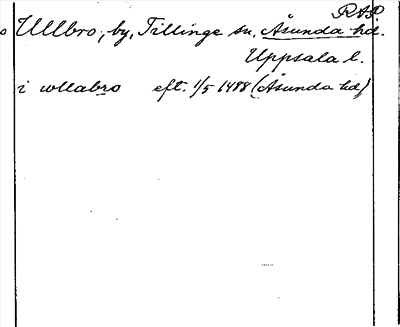 RAP
Ullbro, by, Tillinge sn, Åsunda hd.
Uppsala l.
i wllabro eft. 1/5 1488 (Åsunda hd)